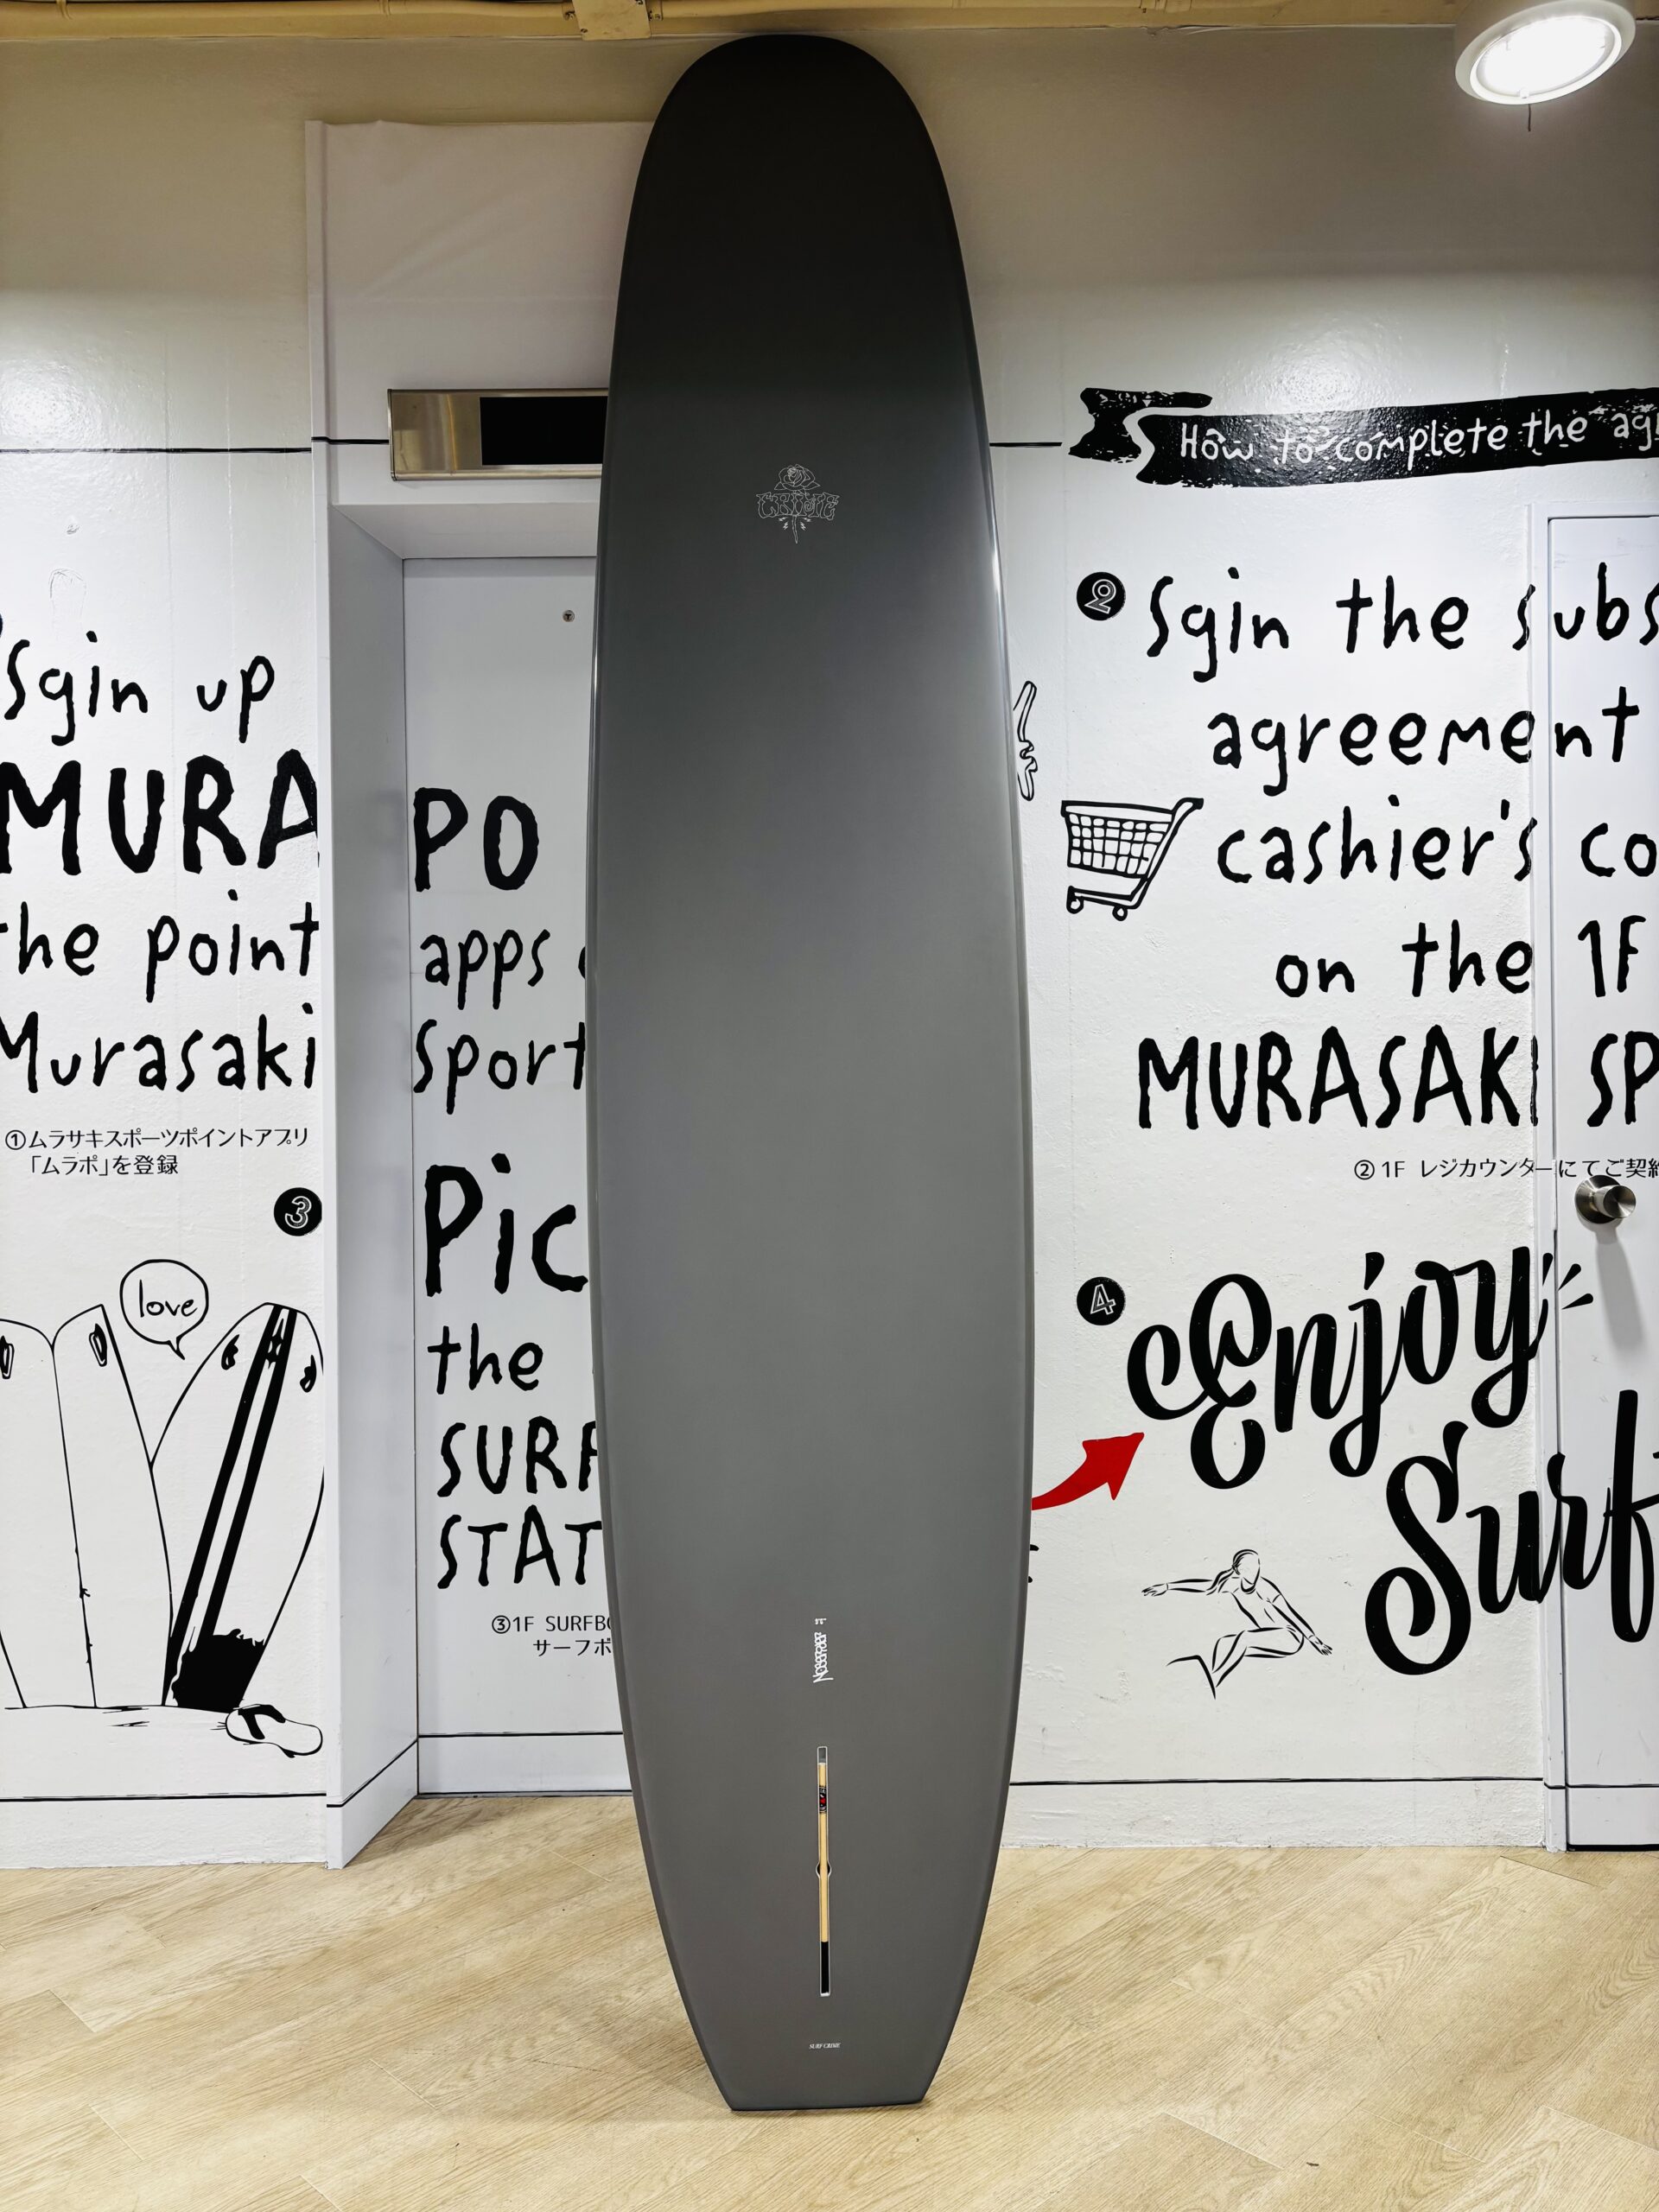 Sgin up
MURA
PO
the point
apps
Murasaki
Sport
①ムラサキスポーツポイントアプリ
「ムラポ」を登録
3
Pic
the
SURF
STAT
③1F SURFBO
サーフボ
love
CRIME
SURF CRIME
How to complete the ag
2
Sgin the subs
agreement
cashier's co
on the 1F
MURASAKI SP
②1F レジカウンターにてご契約
4
Enjoy
Surf